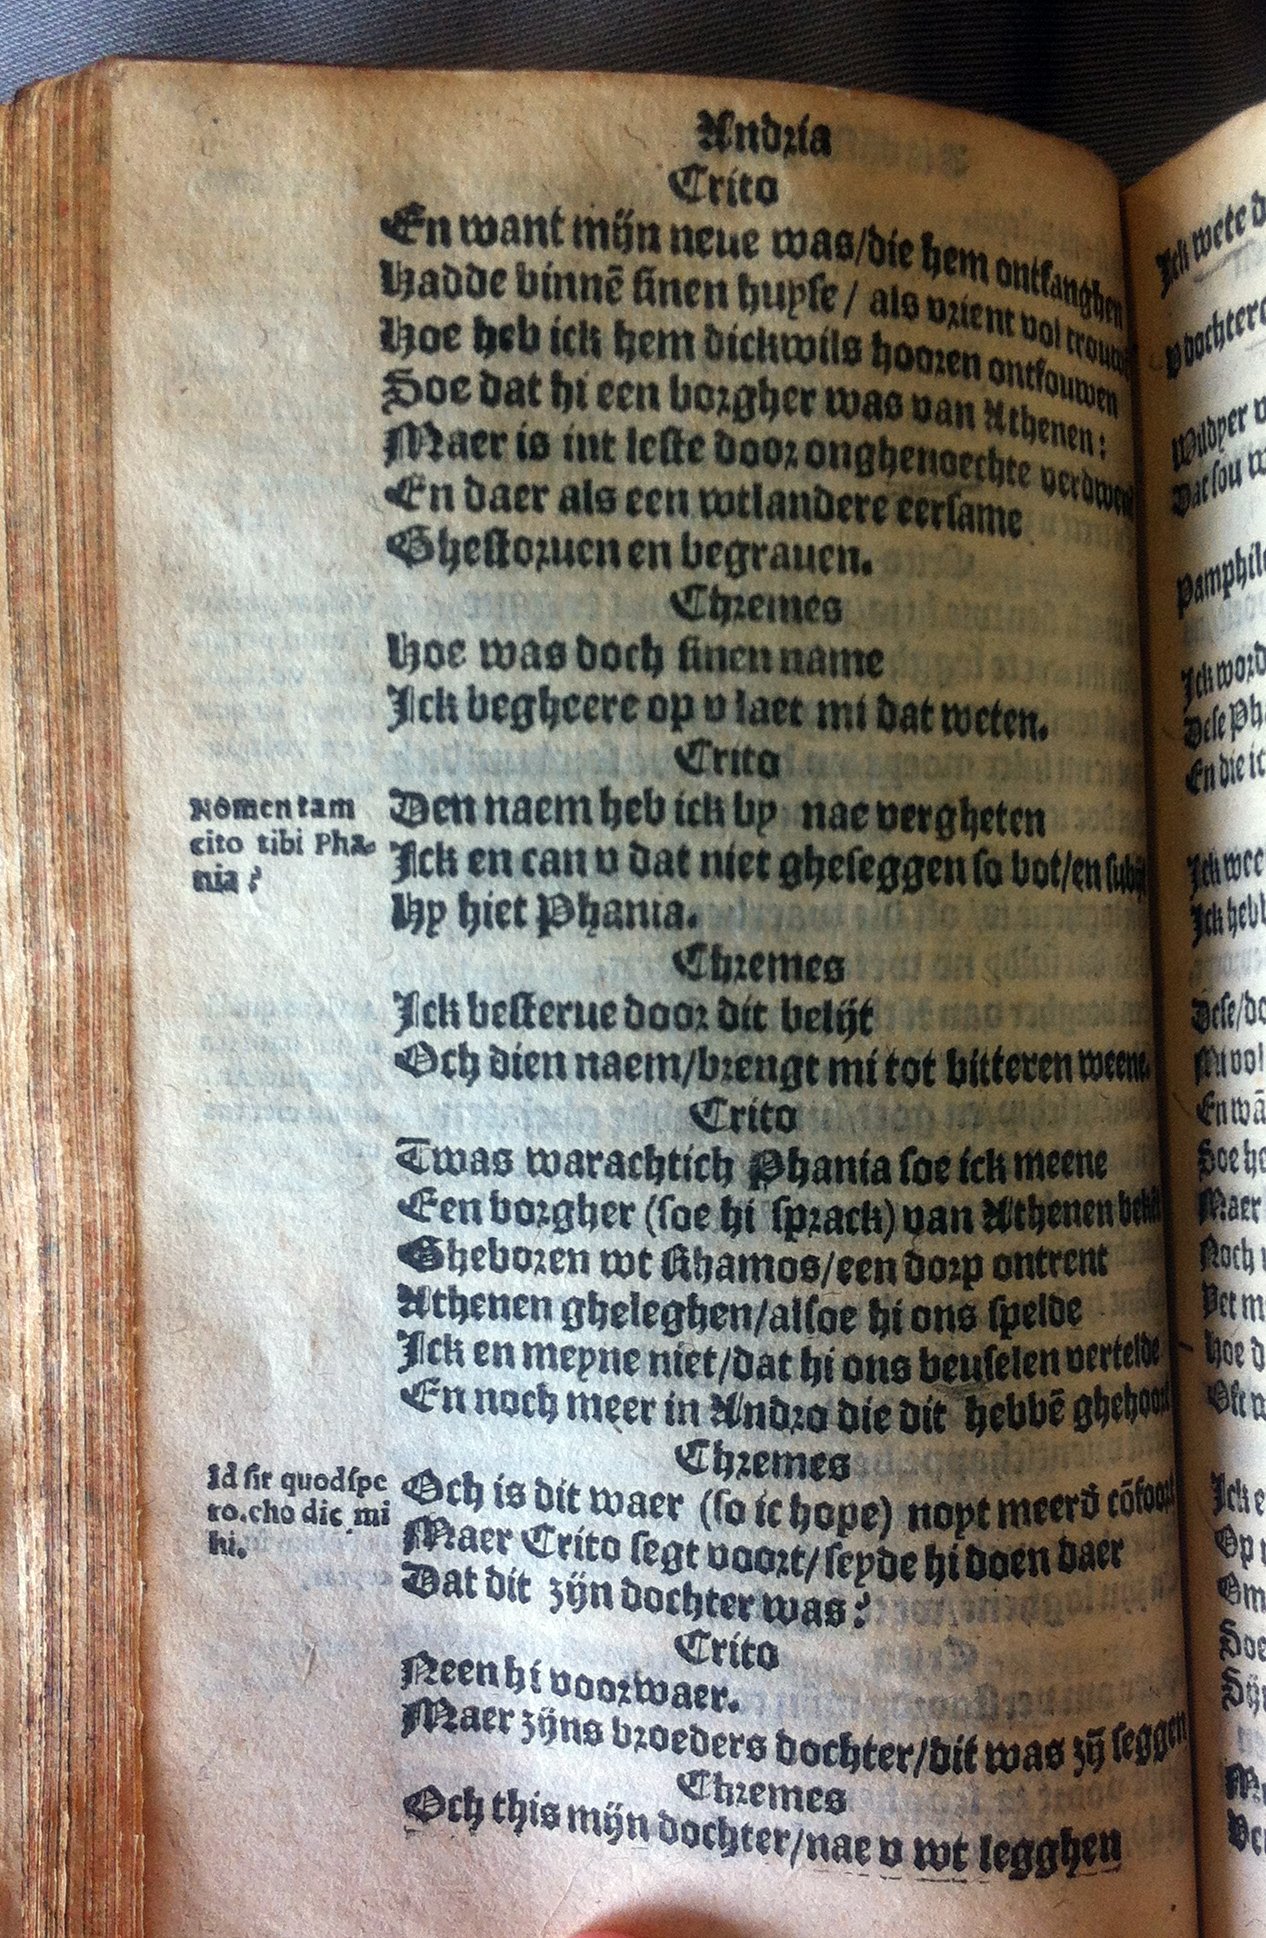 Andria
Crito
En want mijn neue was/die hem ontfanghen
Hadde binnē sinen huyse / als vrient vol trouwen
Hoe heb ick hem dickwils hooren ontfouwen
Soe dat hi een borgher was van Athenen:
Maer is int leste door onghenoechte verdwenen
En daer als een wtlandere eersame
Ghestoruen en begrauen.
Chremes
Hoe was doch sinen name
Ick begheere op v laet mi dat weten.
Crito
Nomen tam
cito tibi Phæ-
nia?
Den naem heb ick by nae vergheten
Ick en can v dat niet gheseggen so bot/en subijt
Hy hiet Phania.
Chremes
Ick besterue door dit belijt
Och dien naem/brengt mi tot bitteren weene.
Crito
Twas warachtich Phania soe ick meene
Een borgher (soe hi sprack) van Athenen
Gheboren wt Rhamos/een dorp ontrent
Athenen gheleghen/alsoe hi ons spelde
Ick en meyne niet/dat hi ons beuselen vertelde
En noch meer in Andro die dit hebbē ghehoort
Chremes
Id sit quod spe
ro.cho dic mi
hi.
Och is dit waer (so ic hope) noyt meerd' cōfoort
Maer Crito segt voort/seyde hi doen daer
Dat dit zijn dochter was?
Crito
Neen hi voorwaer.
Maer zijns broeders dochter/dit was zȳ seggen
Chremes
Och this mijn dochter/nae v wt legghen